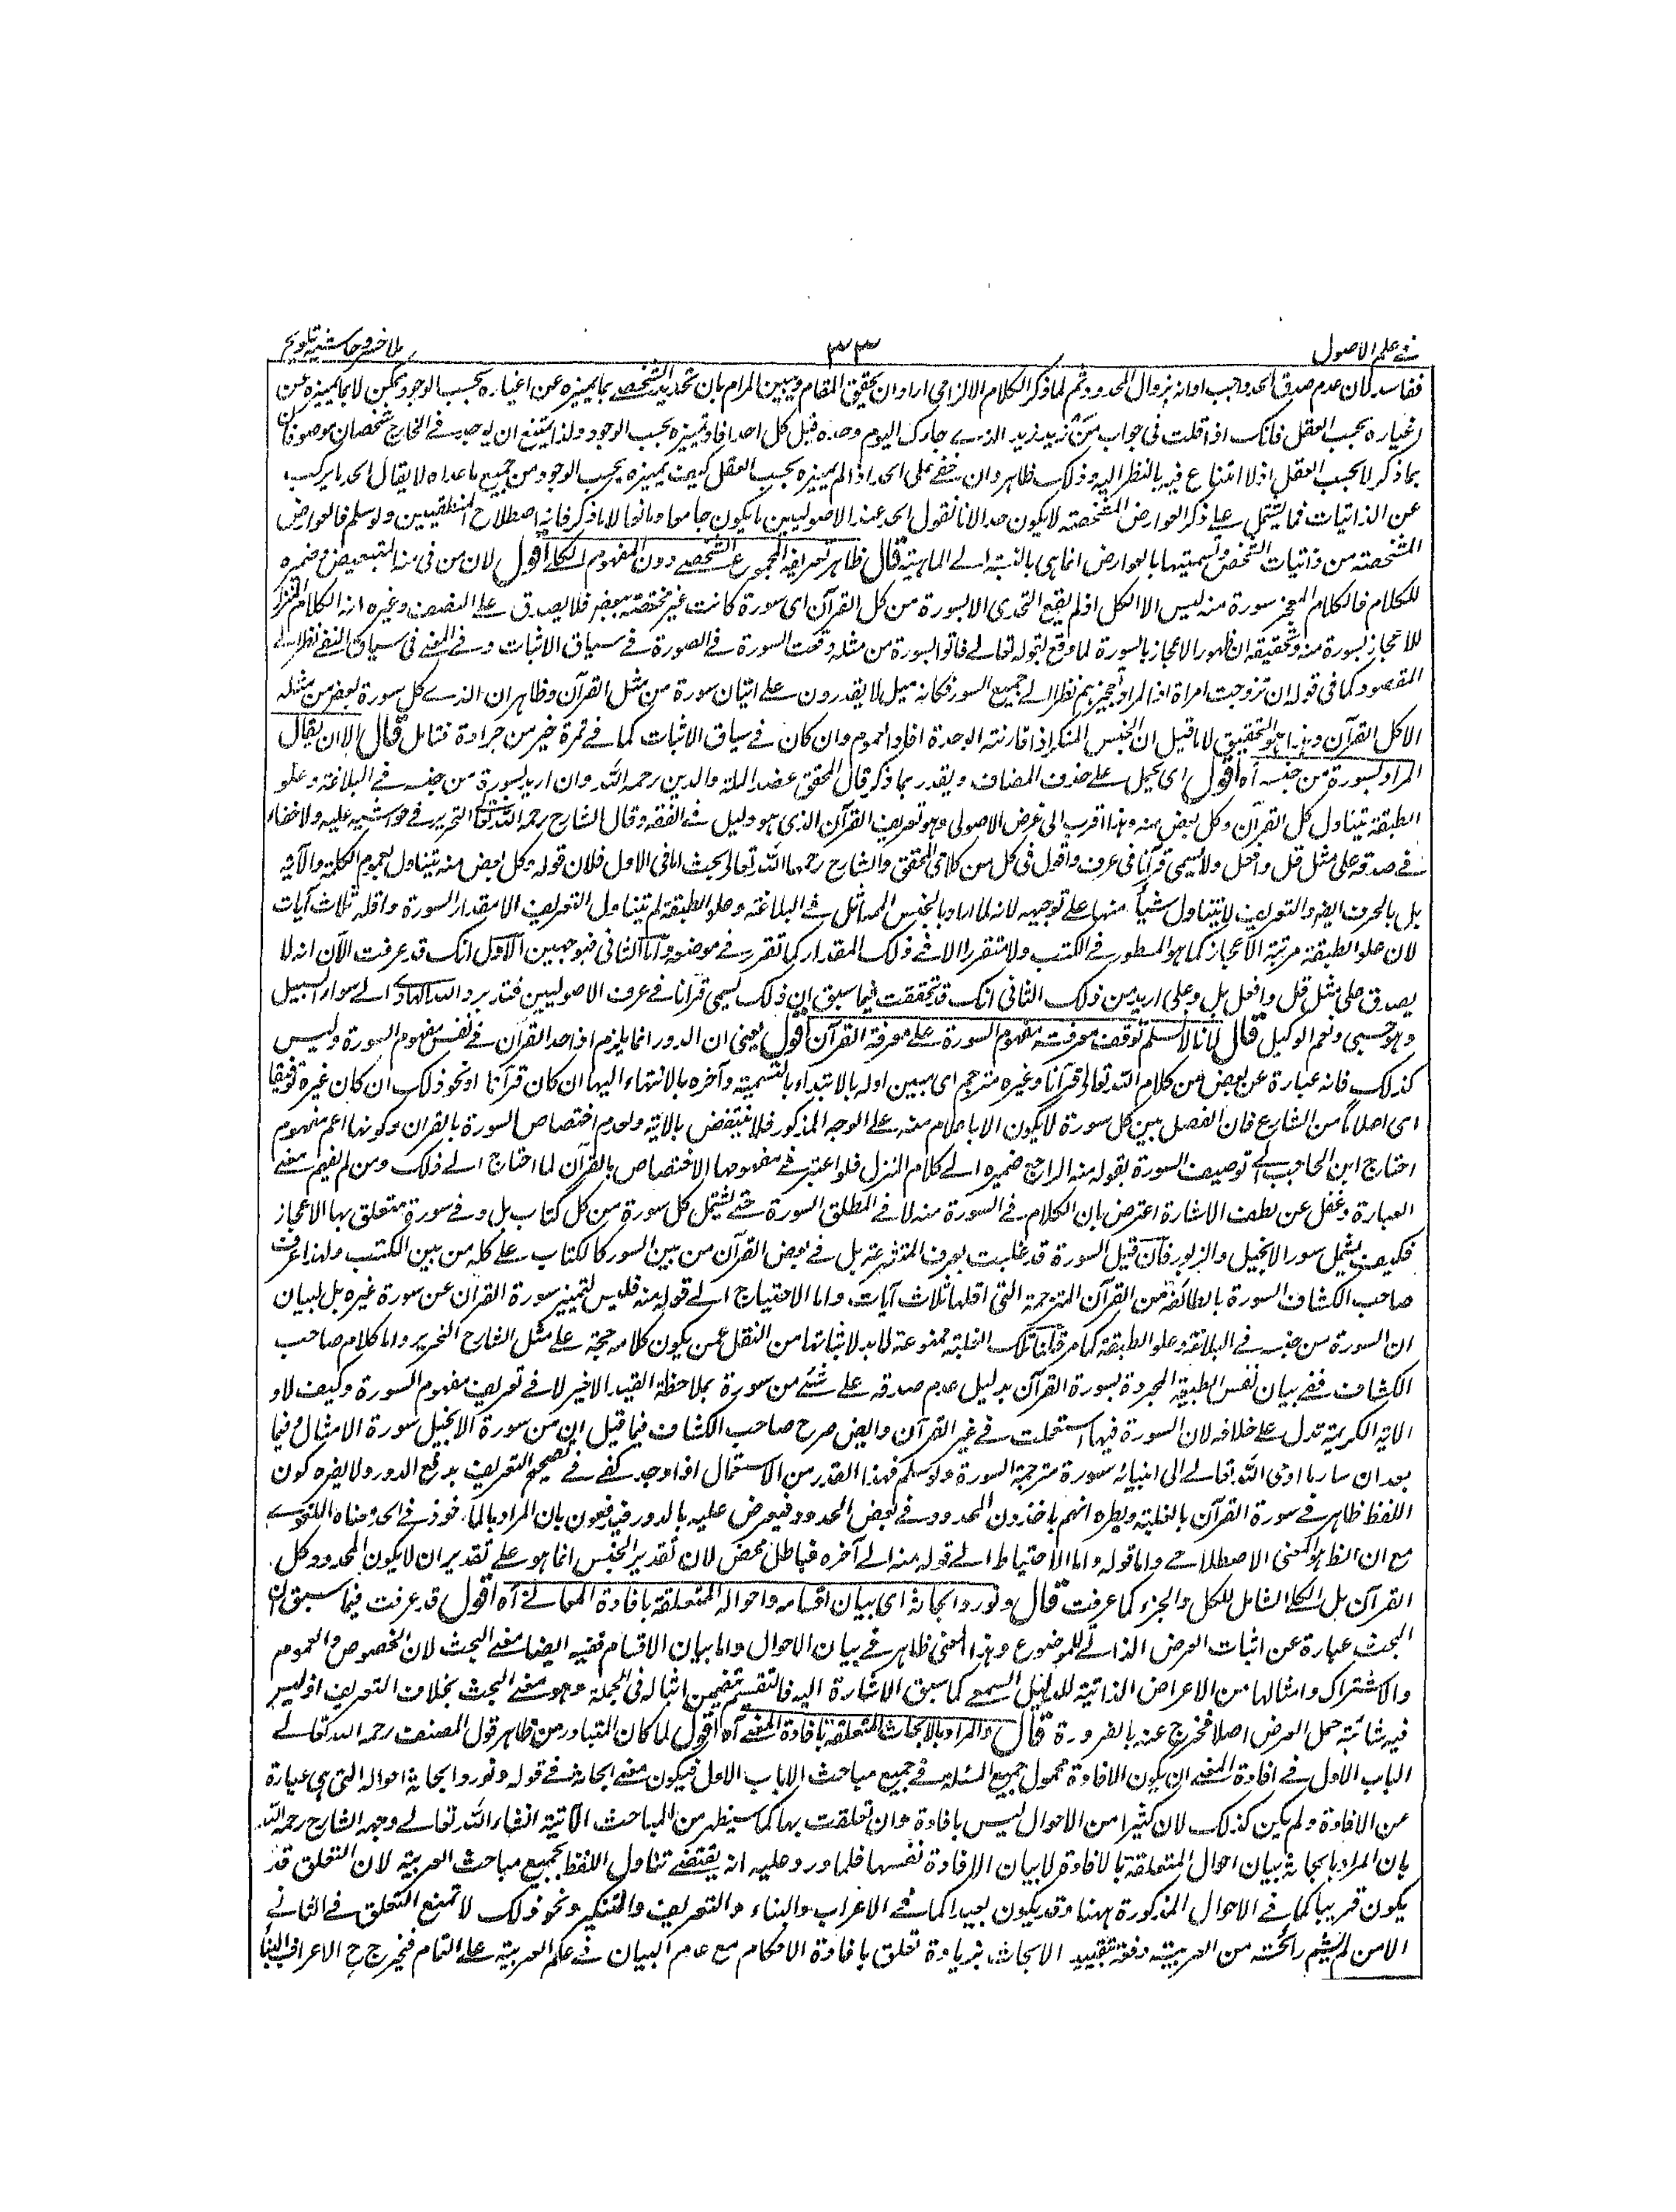 في علم الاصول ٣٣ ملا خسرو حاشية تلويح
ففاسد لان عدم صدق الحد واجب اوانه بزوال المحدود ثم لما ذكر الكلام الالزامى اراد ان يحقق المقام ويبين المرام بان تحديد الشخص بما يميزه عن اغياره بحسب الوجود يمكن لا بما يميزه عن
اغياره بحسب العقل فانك اذا قلت فى جواب من زيد زيد الذى جاءك اليوم وحده قبل كل احد افاد تميزه بحسب الوجود ولذا يمتنع ان يوجد فى الخارج شخصان موصوفان
بما ذكر لا بحسب العقل اذ لا امتناع فيه بالنظر اليه وذلك ظاهر وان خفى على احد اذا لم يميزه بحسب العقل كيف يميزه بحسب الوجود من جميع ما عداه لا يقال الحد ما يركب
عن الذاتيات فما يشتمل على ذكر العوارض المشخصة لا يكون حدا لانا نقول الحد عند الاصوليين ما يكون جامعا ومانعا لا ما ذكر فانه اصطلاح المنطقيين ولو سلم فالعوارض
المشخصة من ذاتيات الشخص وتسميتها بالعوارض انما هى بالنسبة الى الماهية قال ظاهر تعريفه للمجموع الشخصى دون المفهوم الكلى اقول لان من فى منه للتبعيض وضميره
للكلام فالكلام المعجز سورة منه ليس الا الكل اذ لم يقع التحدى الا بسورة من كل القرآن اى سورة كانت غير مختصة ببعض فلا يصدق على البعض وغيره انه الكلام المنزل
للاعجاز بسورة منه وتحقيقه ان ظهور الاعجاز بالسورة لما وقع بقوله تعالى فاتوا بسورة من مثله وقعت السورة فى الصورة فى سياق الاثبات وفى المعنى فى سياق النفى نظرا الى
المقصود كما فى قوله ان تزوجت امراة اذ المراد تعجيزهم نظرا الى جميع السور فكانه قيل لا يقدرون على اتيان سورة من مثل القرآن وظاهر ان الذى كل سورة بعض من مثله
الا كل القرآن وهذا هو التحقيق لا ما قيل ان الجنس المنكر اذا قارنته الوحدة افاد العموم وان كان فى سياق الاثبات كما فى تمرة خير من جرادة فتامل قال الا ان يقال
المراد بسورة من جنسه آه اقول اى يحمل على حذف المضاف ويقدر بما ذكر قال المحقق عضد الملة والدين رحمه الله وان اريد بسورة من جنسه فى البلاغة وعلو
الطبقة يتناول كل القرآن وكل بعض منه وهذا اقرب الى غرض الاصولى وهو تعريف القرآن الذى هو دليل فى الفقه وقال الشارح رحمه الله تعالى التحرير فى حواشيه عليه ولا خفاء
فى صدقه على مثل قل وافعل ولا يسمى قرآنا فى عرف واقول فى كل من كلامى المحقق والشارح رحمهما الله تعالى بحث اما فى الاول فلان قوله وكل بعض منه يتناول بعموم الكلمة والآية
بل بالحرف ايضا والتعريف لا يتناول شيأ منها على توجيهه لانه لما اراد بالجنس المماثل فى البلاغة وعلو الطبقة لم يتناول التعريف الا مقدار السورة واقله ثلاث آيات
لان علو الطبقة مرتبة الاعجاز كما هو المسطور فى الكتب ولا متقررا الا فى ذلك المقدار كما تقرر فى موضعه واما الثانى فبوجهين الاول انك قد عرفت الآن انه لا
يصدق على مثل قل وافعل بل وعلى ازيد من ذلك الثانى انك قد تحققت فيما سبق ان ذلك يسمى قرآنا فى عرف الاصوليين فتدبر والله الهادى الى سواء السبيل
وهو حسبى ونعم الوكيل قال لانا لا نسلم توقف معرفة مفهوم السورة على معرفة القرآن اقول يعنى ان الدور انما يلزم اذ اخذ القرآن فى نفس مفهوم السورة وليس
كذلك فانه عبارة عن بعض من كلام الله تعالى قرآنا وغيره مترجم اى مبين اوله بالابتداء بالتسمية وآخره بالانتهاء اليها ان كان قرآنا او نحو ذلك ان كان غيره توقيفا
اى اعلاما من الشارع فان الفصل بين كل سورة لا يكون الا باعلام منه على الوجه المذكور فلا ينتقض بالآية ولعدم اختصاص السورة بالقران وكونها اعم مفهوم
احتاج ابن الحاجب الى توصيف السورة بقوله منه الراجع ضميره الى كلام المنزل فلو اعتبر فى مفهومها الاختصاص بالقرآن لما احتاج الى ذلك ومن لم يفهم معنى
العبارة وغفل عن لطف الاشارة اعترض بان الكلام فى السورة منه لا فى المطلق السورة حتى يشتمل كل سورة من كل كتاب بل وفى سورة متعلق بها الاعجاز
فكيف يشمل سور الانجيل والزبور فان قيل السورة قد غلبت بعرف المتشرعة بل فى بعض القرآن من بين السور كالكتاب على كله من بين الكتب ولهذا عرف
صاحب الكشاف السورة بالطائفة من القرآن المترجمة التى اقلها ثلاث آيات واما الاحتياج الى قوله منه فليس لتمييز سورة القران عن سورة غيره بل لبيان
ان السورة من جنسه فى البلاغة وعلو الطبقة كما مر قلنا تلك الغلبة ممنوعة لا بد لاثباتها من النقل عمن يكون كلامه حجة على مثل الشارح النحرير واما كلام صاحب
الكشاف ففى بيان نفس الطبقة المجردة بسورة القرآن بدليل عدم صدقه على شئ من سورة بملاحظة القيد الاخير لا فى تعريف مفهوم السورة وكيف لا و
الاية الكريمة تدل على خلافه لان السورة فيها استعملت فى غير القرآن وايضا صرح صاحب الكشاف فيما قيل ان من سورة الانجيل سورة الامثال وفيما
بعد ان سائر ما اوحى الله تعالى الى انبيائه سورة مترجمة السورة ولو سلم فهذا القدر من الاستعمال اذا وجد كفى فى تصحيح التعريف بدفع الدور ولا يضره كون
اللفظ ظاهر فى سورة القرآن بالغلبة ونظيره انهم ياخذون المحدود فى بعض الحدود فيعرض عليه بالدور فيدفعون بان المراد بالماخوذ فى الحد معناه اللغوى
مع ان الظاهر هو المعنى الاصطلاحى واما قوله واما الاحتياط الى قوله منه الى آخره فباطل محض لان تقدير الجنس انما هو على تقدير ان لا يكون المحدود كل
القرآن بل الكلى الشامل للكل والجزء كما عرفت قال ونورد ابحاثه اى بيان اقسامه واحواله المتعلقة بافادة المعانى آه اقول قد عرفت فيما سبق ان
البحث عبارة عن اثبات العرض الذاتى للموضوع وهذا المعنى ظاهر فى بيان الاحوال واما بيان الاقسام ففيه ايضا معنى البحث لان الخصوص والعموم
والاشتراك وامثالها من الاعراض الذاتية للدليل السمعى كما سبق الاشارة اليه فالتقسيم تضمن اثباله فى الجملة وهو معنى البحث بخلاف التعريف اذ ليس
فيه شائبة حمل العرض اصلا فخرج عنه بالضرورة قال والمراد بالابحاث المتعلقة بافادة المعنى آه اقول لما كان المتبادر من ظاهر قول المصنف رحمه الله تعالى
الباب الاول فى افادة المعنى ان يكون الافادة محمول جميع المسئلة فى جميع مباحث الاباب الاول فيكون معنى ابحاثه فى قوله ونورد ابحاثه احواله التى هى عبارة
عن الافادة ولم يكن كذلك لان كثيرا من الاحوال ليس بافادة وان تعلقت بها كما سيظهر من المباحث الآتية انشاء الله تعالى وجهه الشارح رحمه الله
بان المراد بابحاثه بيان احوال المتعلقة بالافادة لا بيان الافادة نفسها فلما ورد عليه انه يقتضى تناول اللفظ بجميع مباحث العربية لان التعلق قد
يكون قريبا كما فى الاحوال المذكورة ههنا وقد يكون بعيدا كما فى الاعراب والبناء والتعريف والتنكير ونحو ذلك لا تمنع التعلق فى الثانى
الا من لم يشم رائحته من العربية دفعه بتقييد الابحاث بزيادة تعلق بافادة الاحكام مع عدم البيان فى علم العربية على التمام فيخرج ح الاعراب والبناء